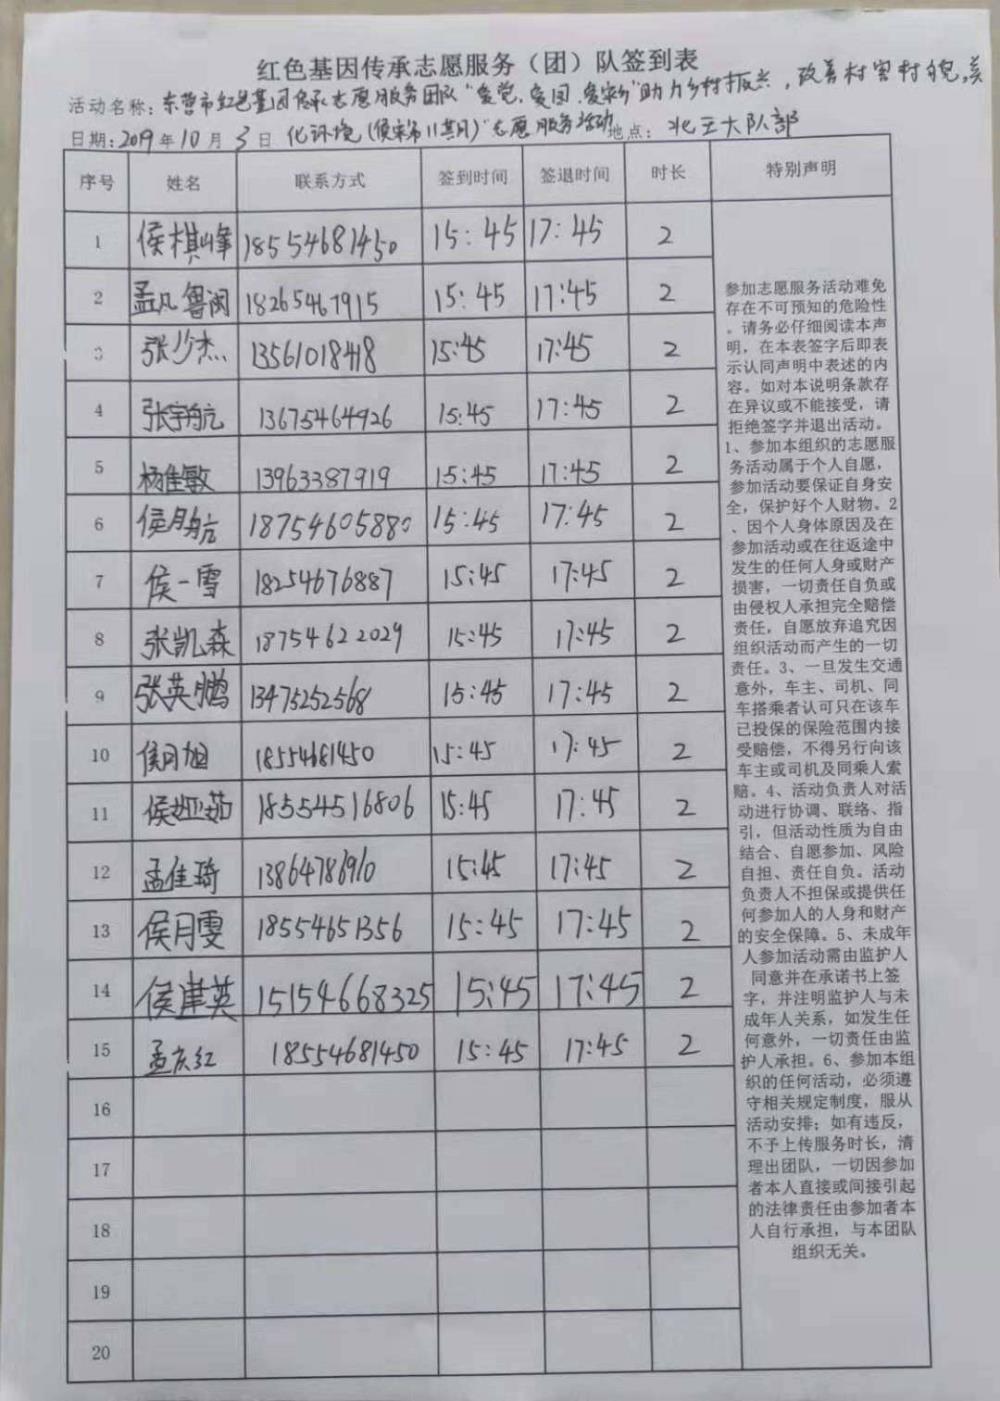 红色基因传承志愿服务（团）队签到表
活动名称：东营市红色基因传承志愿服务团队“爱党、爱国、爱家乡”助力乡村振兴，改善村容村貌，美
日期：2019年10月3日 化环境（侯家第11期）”志愿服务活动 地点：北王大队部
序号 姓名 联系方式 签到时间 签退时间 时长 特别声明
1 侯棋峰 18554681450 15:45 17:45 2
2 孟凡鲁闽 18265467915 15:45 17:45 2
3 张少杰 13561018418 15:45 17:45 2
4 张宇航 13675464926 15:45 17:45 2
5 杨佳敏 13963387919 15:45 17:45 2
6 侯月航 18754605880 15:45 17:45 2
7 侯一雪 18254676887 15:45 17:45 2
8 张凯森 18754622029 15:45 17:45 2
9 张英鹏 13475252568 15:45 17:45 2
10 侯月旭 18554681450 15:45 17:45 2
11 侯娅茹 18554516806 15:45 17:45 2
12 孟佳琦 13864786910 15:45 17:45 2
13 侯月雯 18554651356 15:45 17:45 2
14 侯建英 15154668325 15:45 17:45 2
15 孟庆红 18554681450 15:45 17:45 2
16
17
18
19
20
参加志愿服务活动难免
存在不可预知的危险性
。请务必仔细阅读本声
明，在本表签字后即表
示认同声明中表述的内
容。如对本说明条款存
在异议或不能接受，请
拒绝签字并退出活动。
1、参加本组织的志愿服
务活动属于个人自愿，
参加活动要保证自身安
全，保护好个人财物。2
、因个人身体原因及在
参加活动或在往返途中
发生的任何人身或财产
损害，一切责任自负或
由侵权人承担完全赔偿
责任，自愿放弃追究因
组织活动而产生的一切
责任。3、一旦发生交通
意外，车主、司机、同
车搭乘者认可只在该车
已投保的保险范围内接
受赔偿，不得另行向该
车主或司机及同乘人索
赔。4、活动负责人对活
动进行协调、联络、指
引，但活动性质为自由
结合、自愿参加、风险
自担、责任自负。活动
负责人不担保或提供任
何参加人的人身和财产
的安全保障。5、未成年
人参加活动需由监护人
同意并在承诺书上签
字，并注明监护人与未
成年人关系，如发生任
何意外，一切责任由监
护人承担。6、参加本组
织的任何活动，必须遵
守相关规定制度，服从
活动安排；如有违反，
不予上传服务时长，清
理出团队，一切因参加
者本人直接或间接引起
的法律责任由参加者本
人自行承担，与本团队
组织无关。